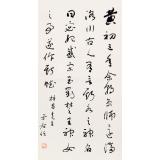 黄初三年余朝京師還濟
洛川古人有言斯水之神名
曰宓妃感宋玉對楚王神女
之事遂作斯賦
于右任